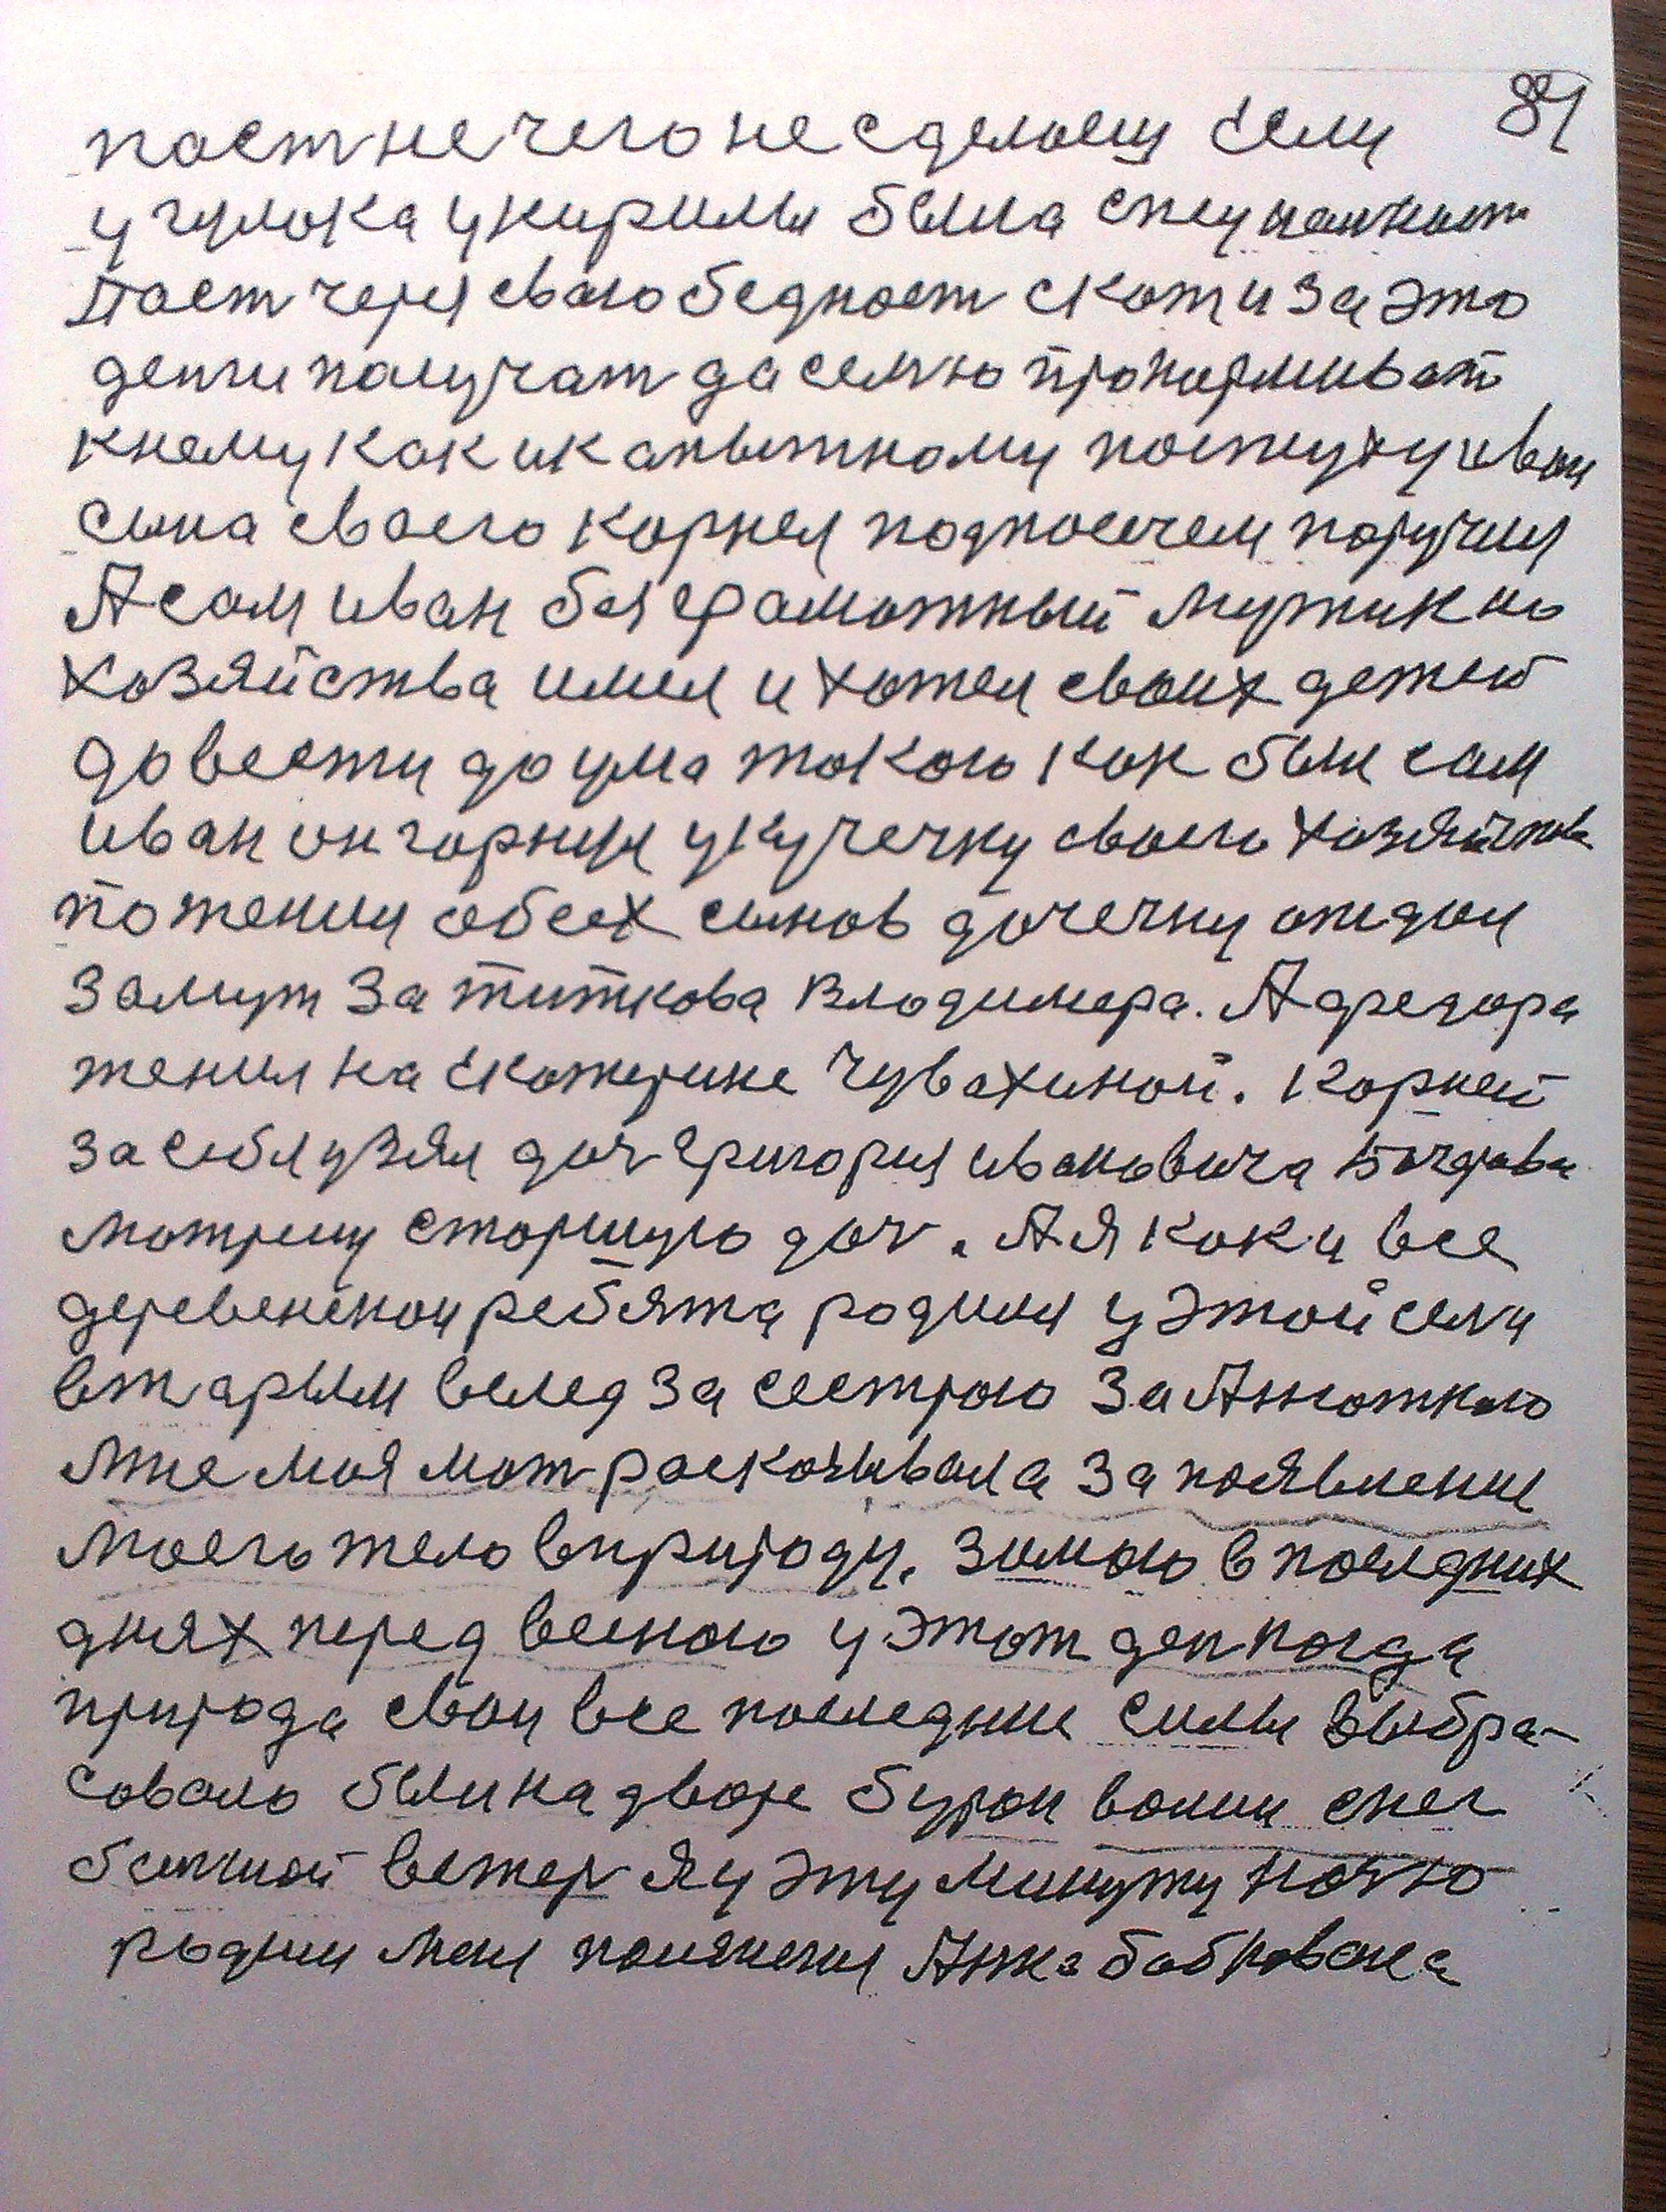 84
паст нечего не сделаеш Если
у чулока у кирилы была специальност
Паст через свою бедност скот и за это
денги получат да семю прокормиват
к нему как и к опытному пастуху иван
сына своего корнея подпасачем поручил
А сам иван без грамотный мужик но
хозяйства имел и хотел своих детей
довести до ума такого как был сам
иван он горнул у кучечку своего хозяйства
поженил обсех сынов дочечку отдал
замуж за титкова владимера. А федора
женил на Екатерине Чувахиной. Корней
за себя узял доч григория ивановича
мотрину старшую доч. А я как и все
деревенскои ребята родился у этой семи
вторым вслед за сестрою за Анюткою
Мне моя мат расказывала за появление
моего тело в природу. зимою в последних
днях перед весною у этот ден когда
природа свои все последние силы выбра-
совало был на дворе буран валил снег
ветер я у эту минуту ночю
родился меня Анна бабкована